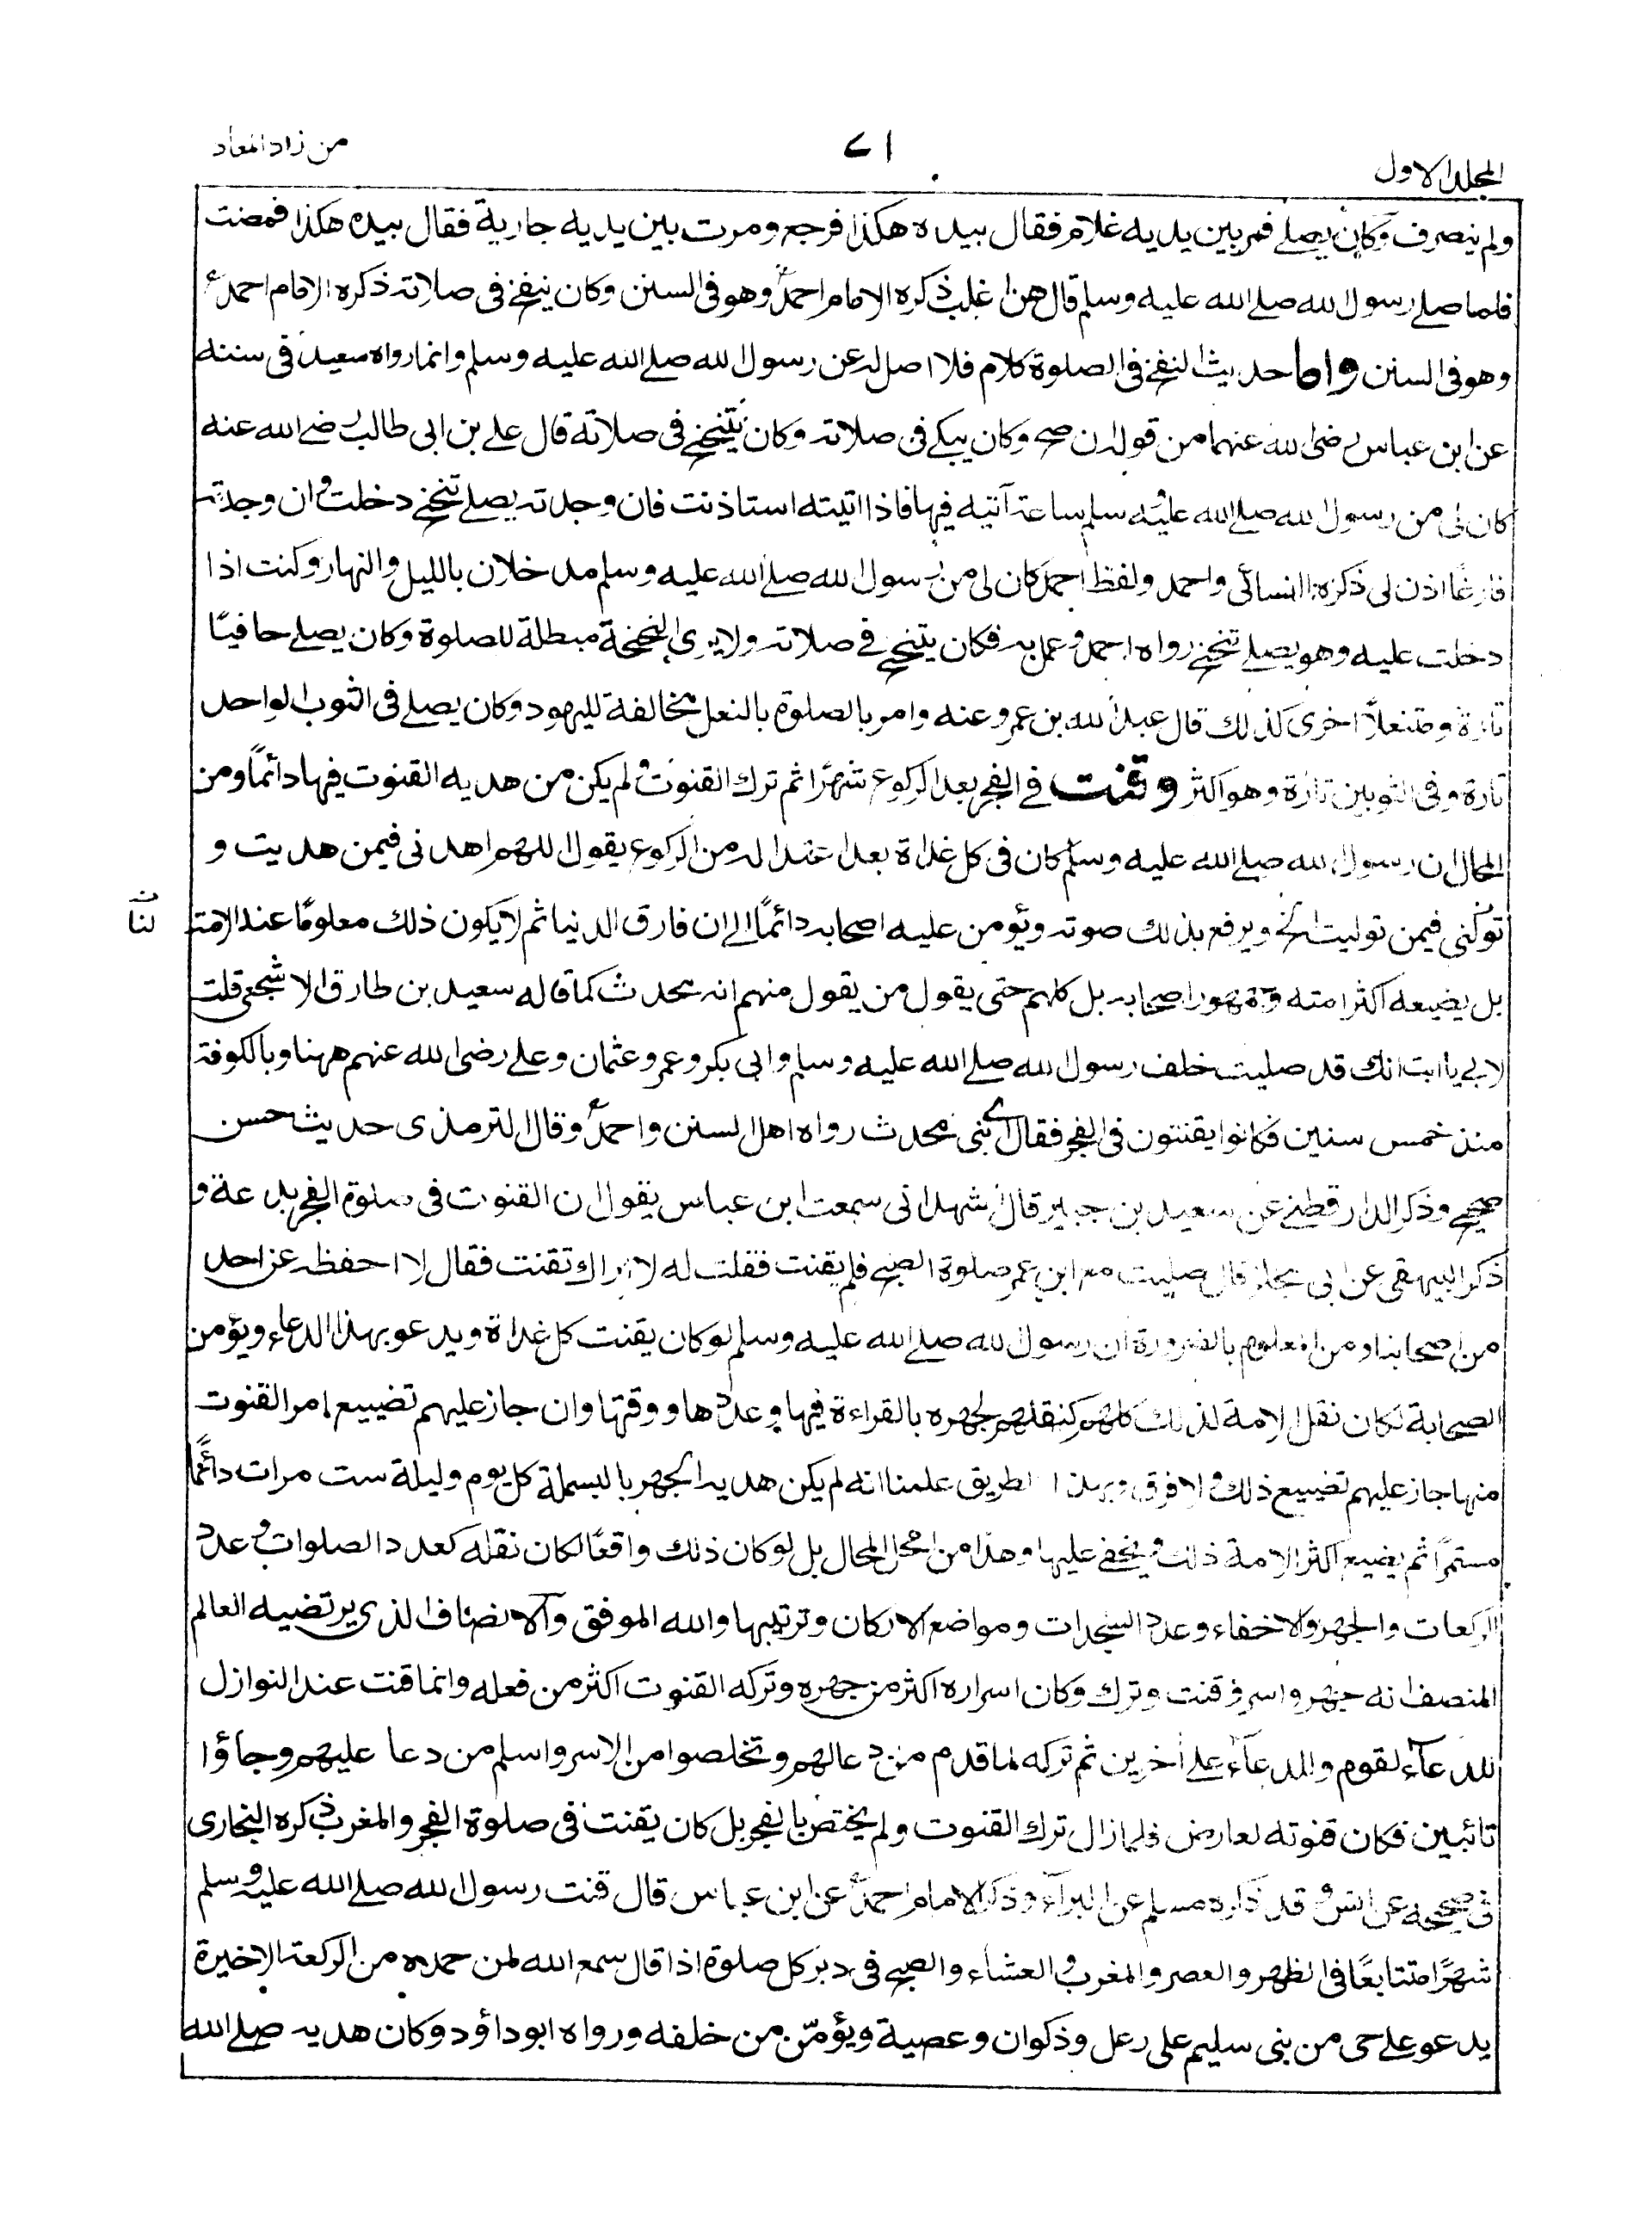 المجلد الاول
٧١
من زاد المعاد
ولم ينصرف وكان يصلے فمر بين يديه غلام فقال بيده هكذا فرجع ومرت بين يديه جارية فقال بيده هكذا فمضت
فلما صلے رسول الله صلے الله عليه وسلم قال هن اغلب ذكره الامام احمدؒ وهو فى السنن وكان ينفخ فى صلاته ذكره الامام احمدؒ
وهو فى السنن واما حديث النفخ فى الصلوة كلام فلا اصل له عن رسول الله صلے الله عليه وسلم وانما رواه سعيد فى سننه
عن ابن عباس رضى الله عنهما من قوله ان صح وكان يبكے فى صلاته وكان يتنحنح فى صلاته قال علے بن ابى طالب رضے الله عنه
كان لى من رسول الله صلے الله عليه وسلم ساعة آتيه فيها فاذا اتيته استاذنت فان وجدته يصلے تنحنح دخلت وان وجدته
فارغًا اذن لى ذكره النسائى واحمد ولفظ احمد كان لى من رسول الله صلے الله عليه وسلم مدخلان بالليل والنهار وكنت اذا
دخلت عليه وهو يصلے تنحنح رواه احمد وعمل به فكان يتنحنح فے صلاته ولا يرى النحنحة مبطلة للصلوة وكان يصلے حافيًا
تارة ومتنعلاً اخرى كذلك قال عبد الله بن عمرو عنه وامر بالصلوة بالنعل مخالفة لليهود وكان يصلے فى الثوب الواحد
تارة وفى الثوبين تارة وهو اكثر وقنت فے الفجر بعد الركوع شهرًا ثم ترك القنوت ولم يكن من هديه القنوت فيها دائماً ومن
المحال ان رسول الله صلے الله عليه وسلم كان فى كل غداة بعد اعتداله من الركوع يقول اللهم اهدنى فيمن هديت و
تولنى فيمن توليت الخ ويرفع بذلك صوته ويؤمن عليه اصحابه دائماً الے ان فارق الدنيا ثم لا يكون ذلك معلومًا عند الامة
بل يضيعه اكثر امته وجمهور اصحابه بل كلهم حتى يقول من يقول منهم انه محدث كما قاله سعيد بن طارق الاشجعى قلت
لابى يا ابت انك قد صليت خلف رسول الله صلے الله عليه وسلم وابى بكر وعمر وعثمان وعلے رضى الله عنهم ههنا وبالكوفة
منذ خمس سنين فكانوا يقنتون فى الفجر فقال اى بنى محدث رواه اهل السنن واحمدؒ وقال الترمذى حديث حسن
صحيح وذكر الدارقطنے عن سعيد بن جبير قال اشهد انى سمعت ابن عباس يقول ان القنوت فى صلوة الفجر بدعة و
ذكر البيهقى عن ابى مجلز قال صليت مع ابن عمر صلوة الصبح فلم يقنت فقلت له لا اراك تقنت فقال لا احفظه عن احد
من اصحابنا ومن المعلوم بالضرورة ان رسول الله صلے الله عليه وسلم لو كان يقنت كل غداة ويدعو بهذا الدعاء ويؤمن
الصحابة لكان نقل الامة لذلك كلهم كنقلهم لجهره بالقراءة فيها وعددها ووقتها وان جاز عليهم تضييع امر القنوت
منها جاز عليهم تضييع ذلك ولا فرق وبهذا الطريق علمنا انه لم يكن هديه الجهر بالبسملة كل يوم وليلة ست مرات دائمًا
مستمرًا ثم يضيع اكثر الامة ذلك ويخفے عليها وهذا من امحل المحال بل لو كان ذلك واقعًا لكان نقله كعدد الصلوات وعدد
الركعات والجهر والاخفاء وعدد السجدات ومواضع الاركان وترتيبها والله الموفق والانصاف الذى يرتضيه العالم
المنصف انه جهر واسر وقنت وترك وكان اسراره اكثر من جهره وتركه القنوت اكثر من فعله وانما قنت عند النوازل
للدعآء لقوم والدعآء علے أخرين ثم تركه لما قدم من دعا لهم وتخلصوا من الاسر واسلم من دعا عليهم وجاؤا
تائبين فكان قنوته لعارض فلما زال ترك القنوت ولم يختص بالفجر بل كان يقنت فى صلوة الفجر والمغرب ذكره البخارى
فى صحيحه عن انس وقد ذكره مسلم عن البرآء وذكر الامام احمدؒ عن ابن عباس قال قنت رسول الله صلے الله عليه وسلم
شهرًا متتابعًا فى الظهر والعصر والمغرب والعشاء والصبح فى دبر كل صلوة اذا قال سمع الله لمن حمده من الركعة الاخيرة
يدعو علے حى من بنى سليم على رعل وذكوان وعصية ويؤمّن من خلفه ورواه ابو داؤد وكان هديه صلے الله